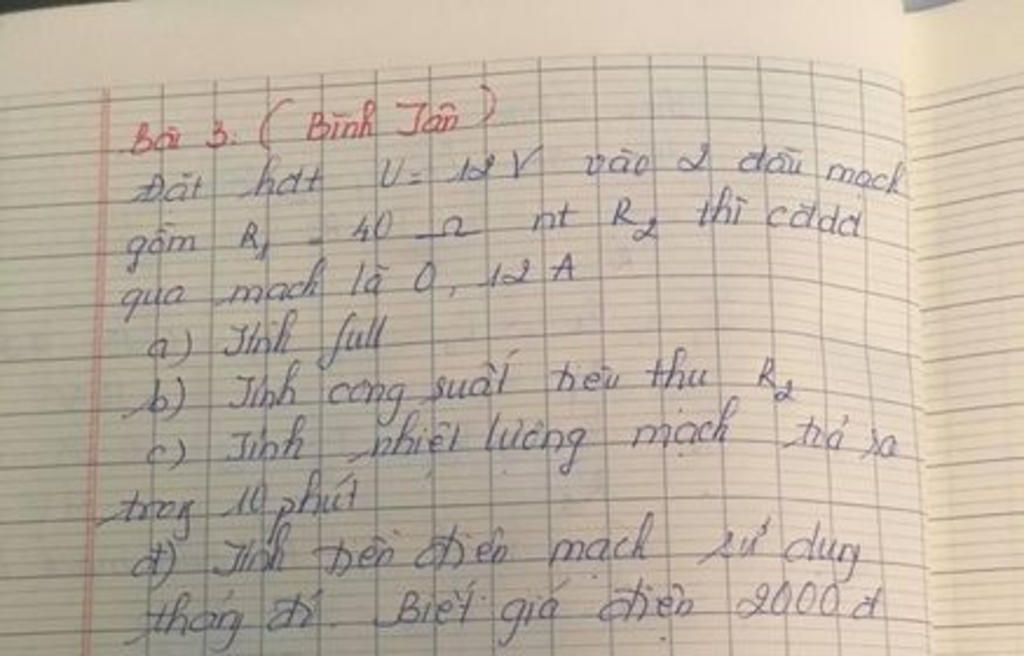 Bài 3. ( Bình Tân )
Đặt hdt U = 12 V vào 2 đầu mạch
gồm R₁ = 40 Ω nt R₂ thì cđdđ
qua mạch là 0,12 A
a) Tính full
b) Tính công suất tiêu thụ R₂
c) Tính nhiệt lượng mạch toả ra
trong 10 phút
d) Tính tiền điện mạch sử dụng
tháng đó. Biết giá điện 2000 đ